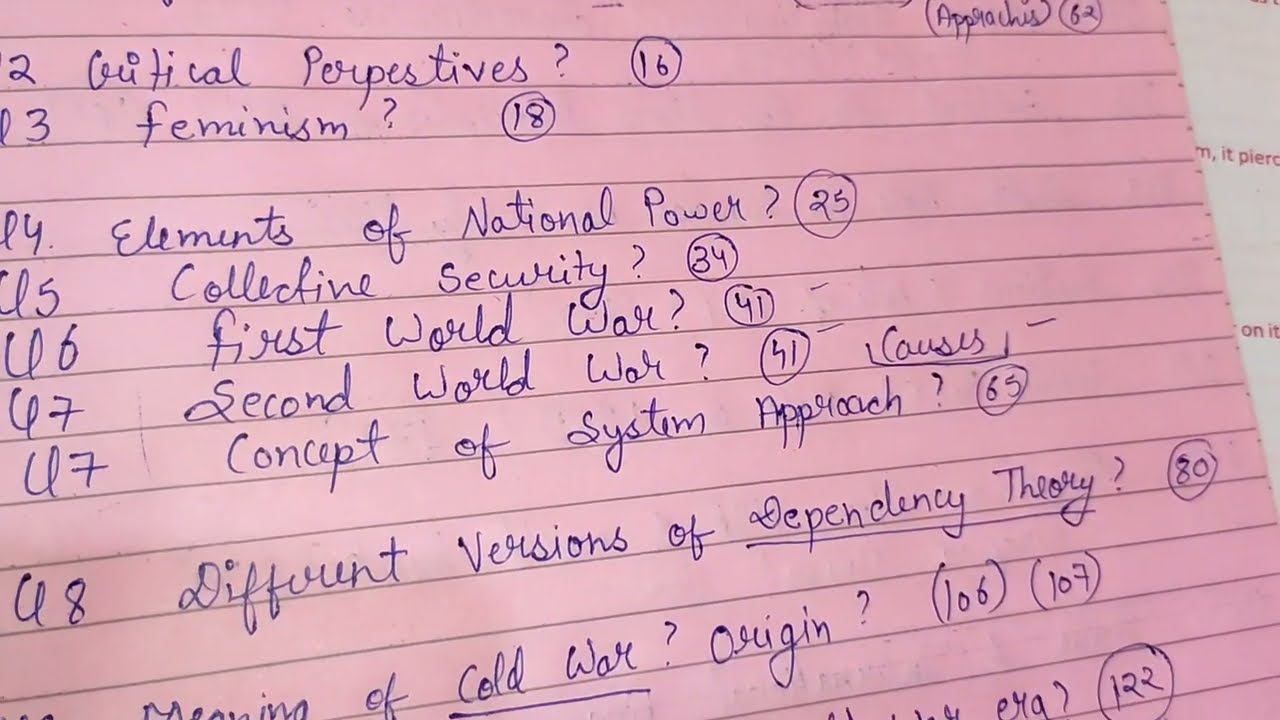 (Appraches) (62)
2 Critical Perpestives ? (16)
Q3 feminism ? (18)
m, it pierc
Q4. Elements of National Power ? (25)
Q5 Collective Security ? (34)
Q6 first World War ? (41) -
on it
Q7 Second World War ? (41) - Causes -
Q7 Concept of System Approach ? (65)
Q8 Different Versions of Dependency Theory ? (80)
Meaning of Cold War ? Origin ? (106) (107)
era? (122)